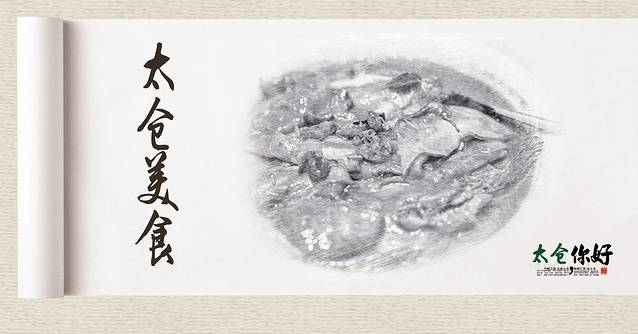 太仓美食
太仓你好